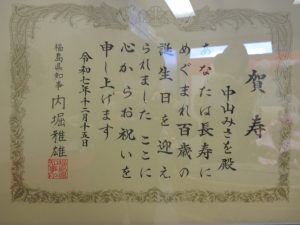 賀寿
中山みさを殿
あなたは長寿に
めぐまれ百歳の
誕生日を迎え
られました ここに
心からお祝いを
申し上げます
令和七年十二月十五日
福島県知事 内堀雅雄